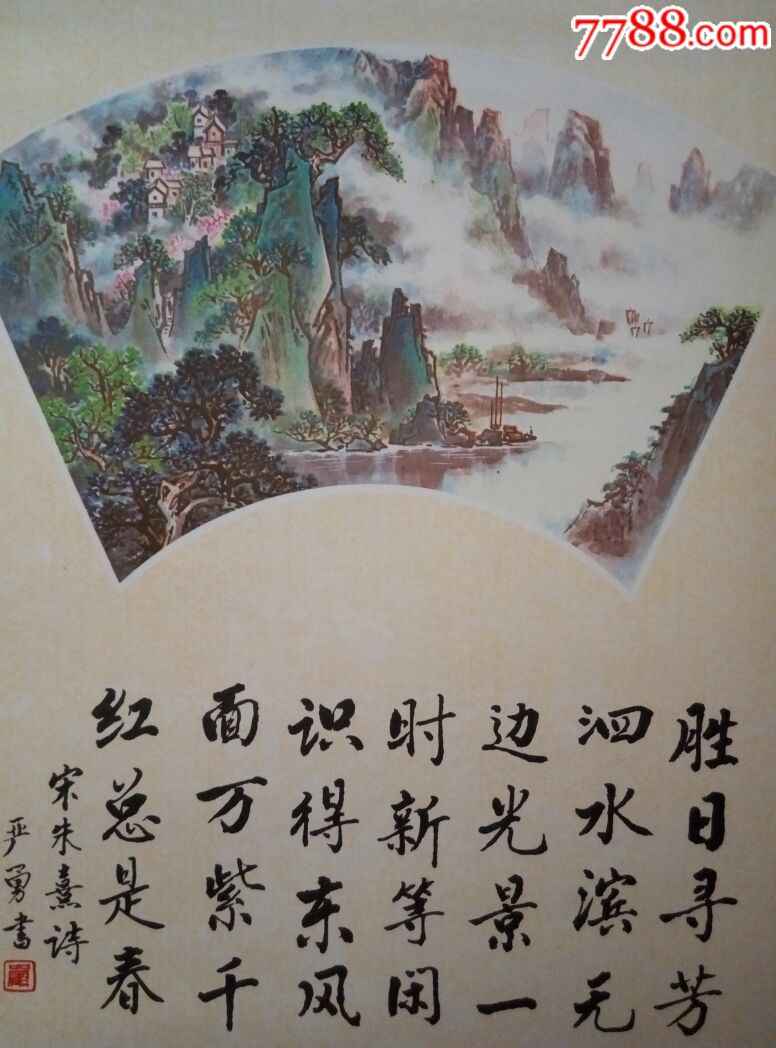 7788.com
胜日寻芳
泗水滨无
边光景一
时新等闲
识得东风
面万紫千
红总是春
宋朱熹诗
严勇书